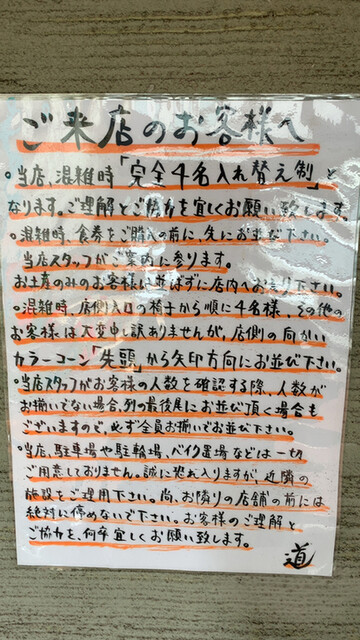 ご来店のお客様へ
。当店、混雑時「完全4名入れ替え制」と
なります。ご理解とご協力を宜しくお願い致します。
。混雑時、食券をご購入の前に、先にお並び下さい。
当店スタッフがご案内に参ります。
お土産のみのお客様は並ばずに店内へお入り下さい。
。混雑時、店側入口の椅子から順に4名様、その他の
お客様は大変申し訳ありませんが、店側の向かい
カラーコーン「先頭」から矢印方向にお並び下さい。
。当店スタッフがお客様の人数を確認する際、人数が
お揃いでない場合、列の最後尾にお並び頂く場合も
ございますので、必ず全員お揃いでお並び下さい。
。当店、駐車場や駐輪場、バイク置場などは一切
ご用意しておりません。誠に恐れ入りますが、近隣の
施設をご利用下さい。尚、お隣りの店舗の前には
絶対に停めないで下さい。お客様のご理解と
ご協力を、何卒宜しくお願い致します。
道